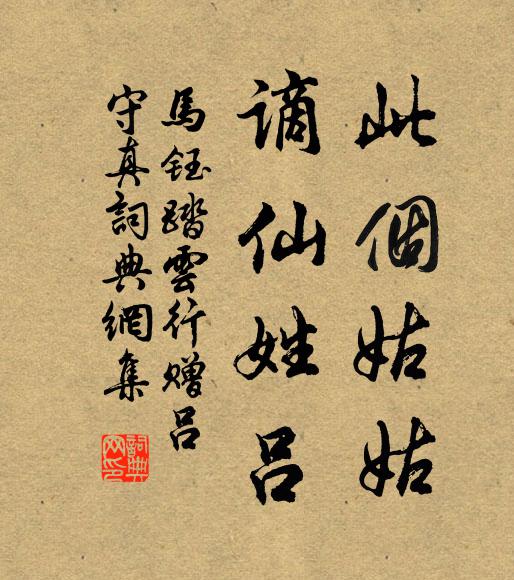 此個姑姑
謫仙姓呂
馬鈺踏雲行贈呂
守真詞典網集
詞典
网印